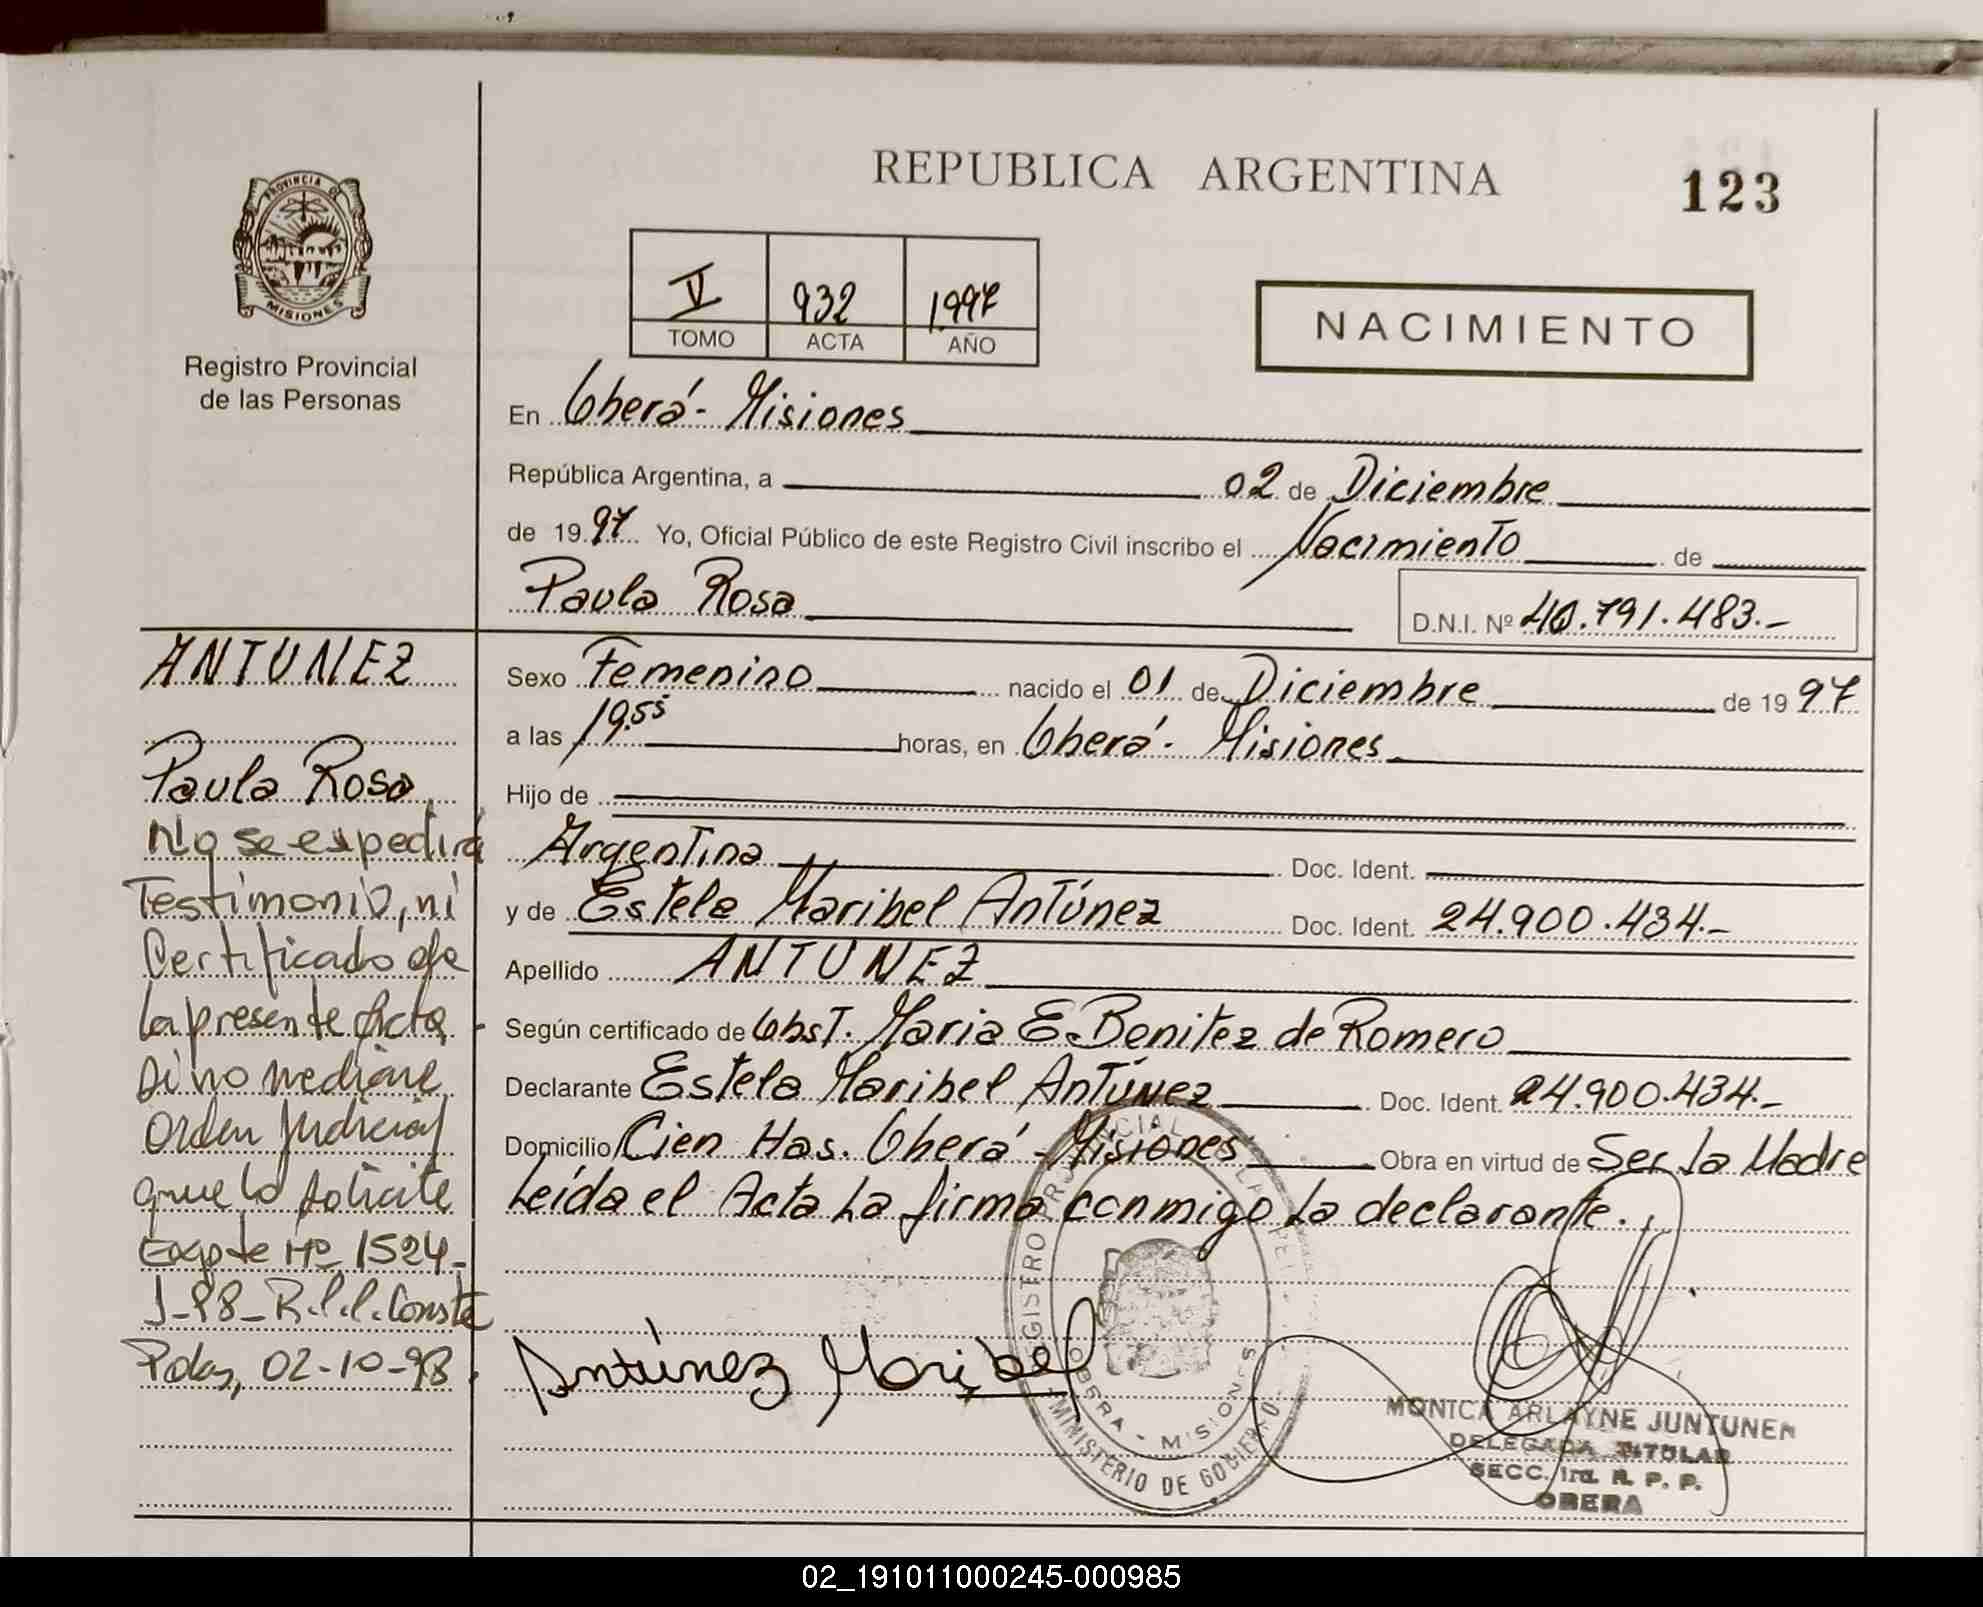 REPUBLICA ARGENTINA
123
PROVINCIA DE
MISIONES
Registro Provincial
de las Personas
V 932 1.997
TOMO ACTA AÑO
NACIMIENTO
En Oberá - Misiones
República Argentina, a 02 de Diciembre
de 19 97 Yo, Oficial Público de este Registro Civil inscribo el Nacimiento de
Paula Rosa
D.N.I. Nº 40.791.483.-
ANTUNEZ
Paula Rosa
No se expedirá
Testimonio, ni
Certificado de
la presente Acta
Si no mediare
Orden Judicial
que lo solicite
Expte Nº 1524-
J-98-R.l.l. Conste
Pdas, 02-10-98
Sexo Femenino nacido el 01 de Diciembre de 19 97
a las 19.55 horas, en Oberá - Misiones
Hijo de
Argentina Doc. Ident.
y de Estela Maribel Antúnez Doc. Ident. 24.900.434.-
Apellido ANTUNEZ
Según certificado de Obst. Maria E. Benitez de Romero
Declarante Estela Maribel Antúnez Doc. Ident. 24.900.434.-
Domicilio Cien Has. Oberá - Misiones Obra en virtud de Ser la Madre
Leída el Acta La firma conmigo La declarante.
Antúnez Maribel
MINISTERIO DE GOBIERNO
OBERA - MISIONES
MONICA ARLAYNE JUNTUNEN
DELEGADA TITULAR
SECC. 1ra. R. P. P.
OBERA
02_191011000245-000985